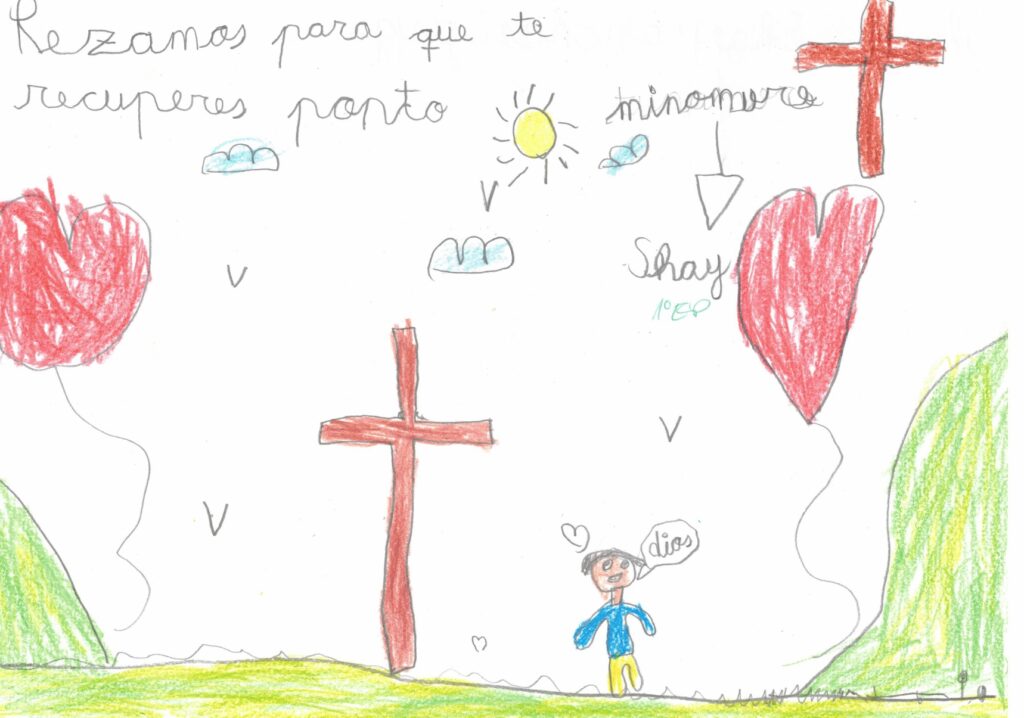 Rezamos para que te
recuperes ponto minomvre
Shay
1º EP
dios